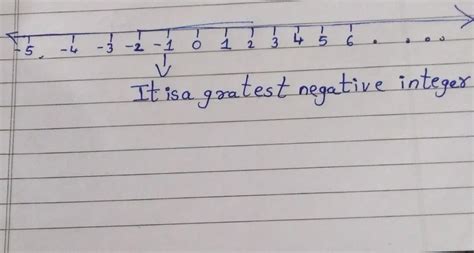 -5. -4 -3 -2 -1 0 1 2 3 4 5 6 . . . .
It is a gratest negative integer